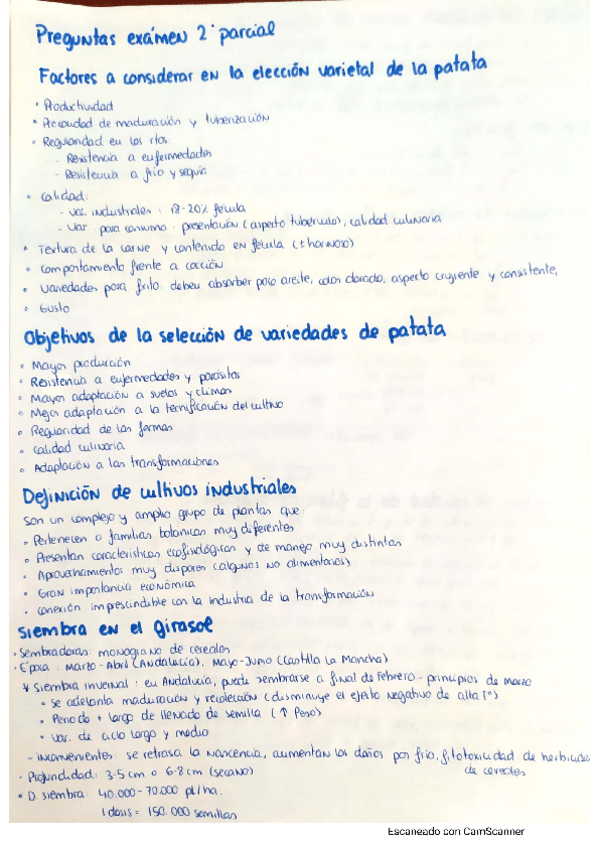 Preguntas exámen 2º parcial
Factores a considerar en la elección varietal de la patata
• Productividad
• Precocidad de maduración y tuberización
• Regularidad en los rtos:
- Resistencia a enfermedades
- Resistencia a frío y sequía
• Calidad:
- Var. industriales: 18-20% fécula
- Var. para consumo: presentación (aspecto tubérculo), calidad culinaria
• Textura de la carne y contenido en fécula (+ harinoso)
• Comportamiento frente a cocción
• Variedades para frito: deben absorber poco aceite, color dorado, aspecto crujiente y consistente,
• Gusto
Objetivos de la selección de variedades de patata
• Mayor producción
• Resistencia a enfermedades y parásitos
• Mayor adaptación a suelos y climas
• Mejor adaptación a la tecnificación del cultivo
• Regularidad de las formas
• Calidad culinaria
• Adaptación a las transformaciones
Definición de cultivos industriales
Son un complejo y amplio grupo de plantas que:
• Pertenecen a familias botánicas muy diferentes
• Presentan características ecofisiológicas y de manejo muy distintas
• Aprovechamientos muy dispares (algunos no alimentarios)
• Gran importancia económica
• Conexión imprescindible con la industria de la transformación
Siembra en el girasol
• Sembradoras monograno de cereales
• Época: Marzo-Abril (Andalucía), Mayo-Junio (Castilla La Mancha)
* Siembra invernal: en Andalucía, puede sembrarse a final de febrero - principios de marzo
• Se adelanta maduración y recolección (disminuye el efecto negativo de alta Tº)
• Periodo + largo de llenado de semilla (↑ Peso)
• Var. de ciclo largo y medio
- Inconvenientes: se retrasa la nascencia, aumentan los daños por frío, fitotoxicidad de herbicidas
de cereales
• Profundidad: 3-5 cm o 6-8 cm (secano)
• D. siembra: 40.000-70.000 pl/ha.
1 dosis = 150.000 semillas
Escaneado con CamScanner